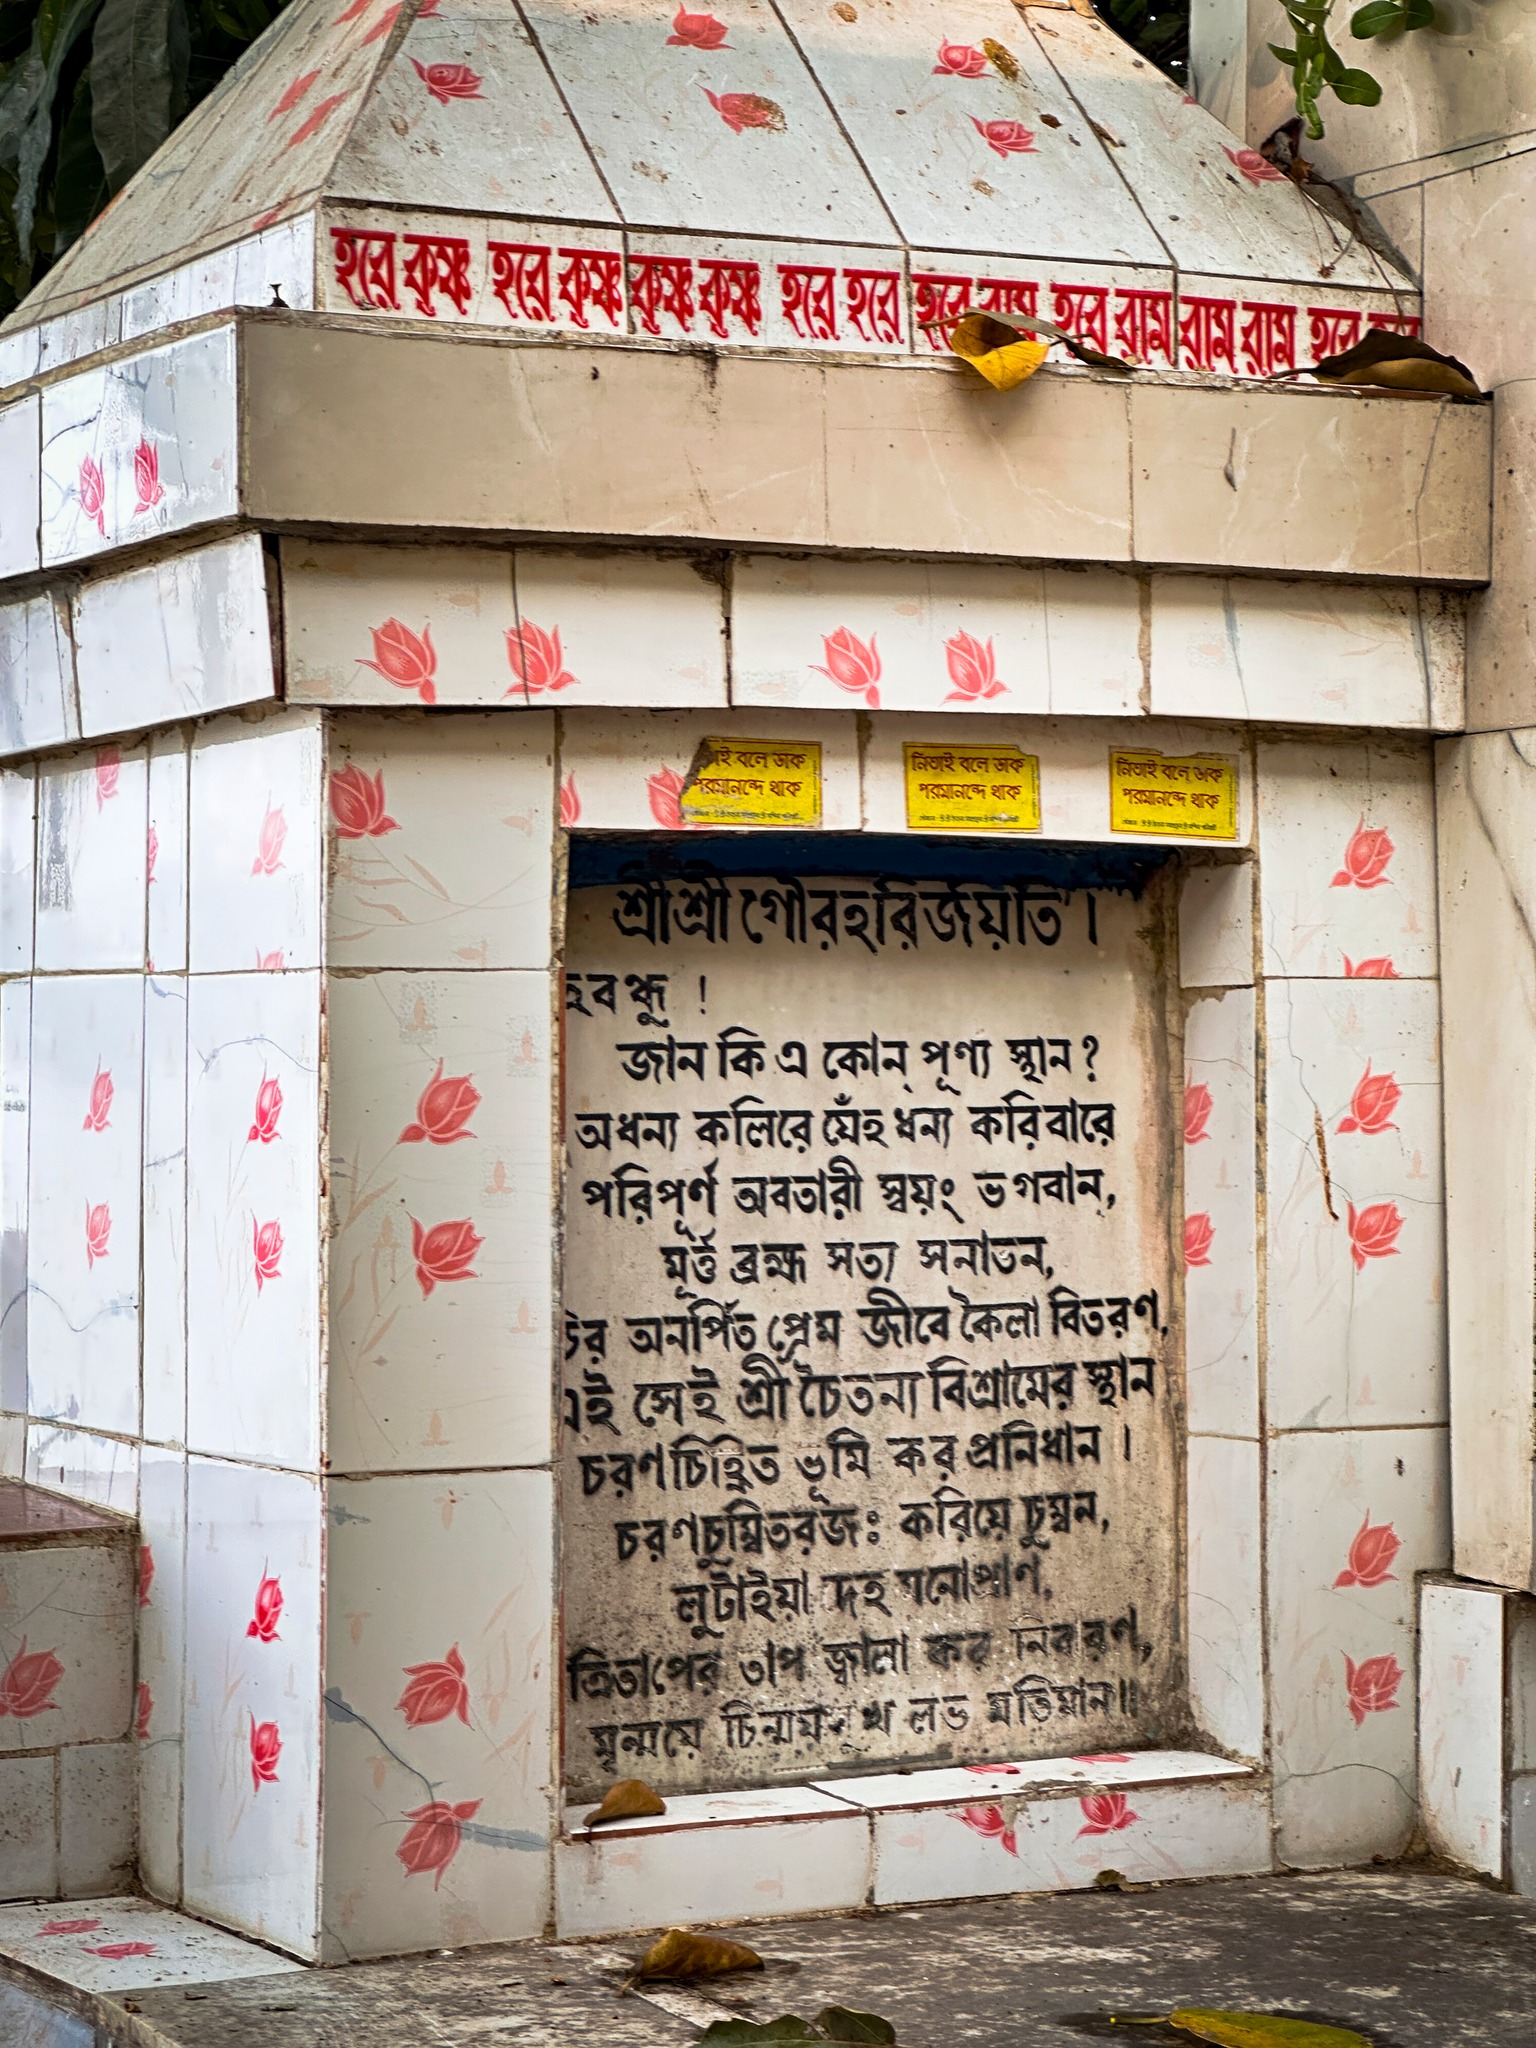 হরে কৃষ্ণ হরে কৃষ্ণ কৃষ্ণ কৃষ্ণ হরে হরে হরে রাম হরে রাম রাম রাম হরে হরে
নিতাই বলে ডাক নিতাই বলে ডাক
পরমানন্দে থাক পরমানন্দে থাক পরমানন্দে থাক
শ্রীশ্রী গৌরহরির্জয়তি ।
বন্ধু !
জান কি এ কোন্ পূণ্য স্থান ?
অধন্য কলিরে যেঁহ ধন্য করিবারে
পরিপূর্ণ অবতারী স্বয়ং ভগবান্,
মূর্ত্ত ব্রহ্ম সত্য সনাতন,
অনর্পিত প্রেম জীবে কৈলা বিতরণ,
সেই শ্রীচৈতন্য বিশ্রামের স্থান
চরণচিহ্নিত ভূমি কর প্রনিধান ।
চরণচুম্বিতরজঃ করিয়ে চুম্বন,
লুটাইয়া দেহ মনোপ্রাণ,
ত্রিতাপের তাপ জ্বালা কর নিবারণ,
মৃন্ময়ে চিন্ময়সুখ লভ মতিমান॥